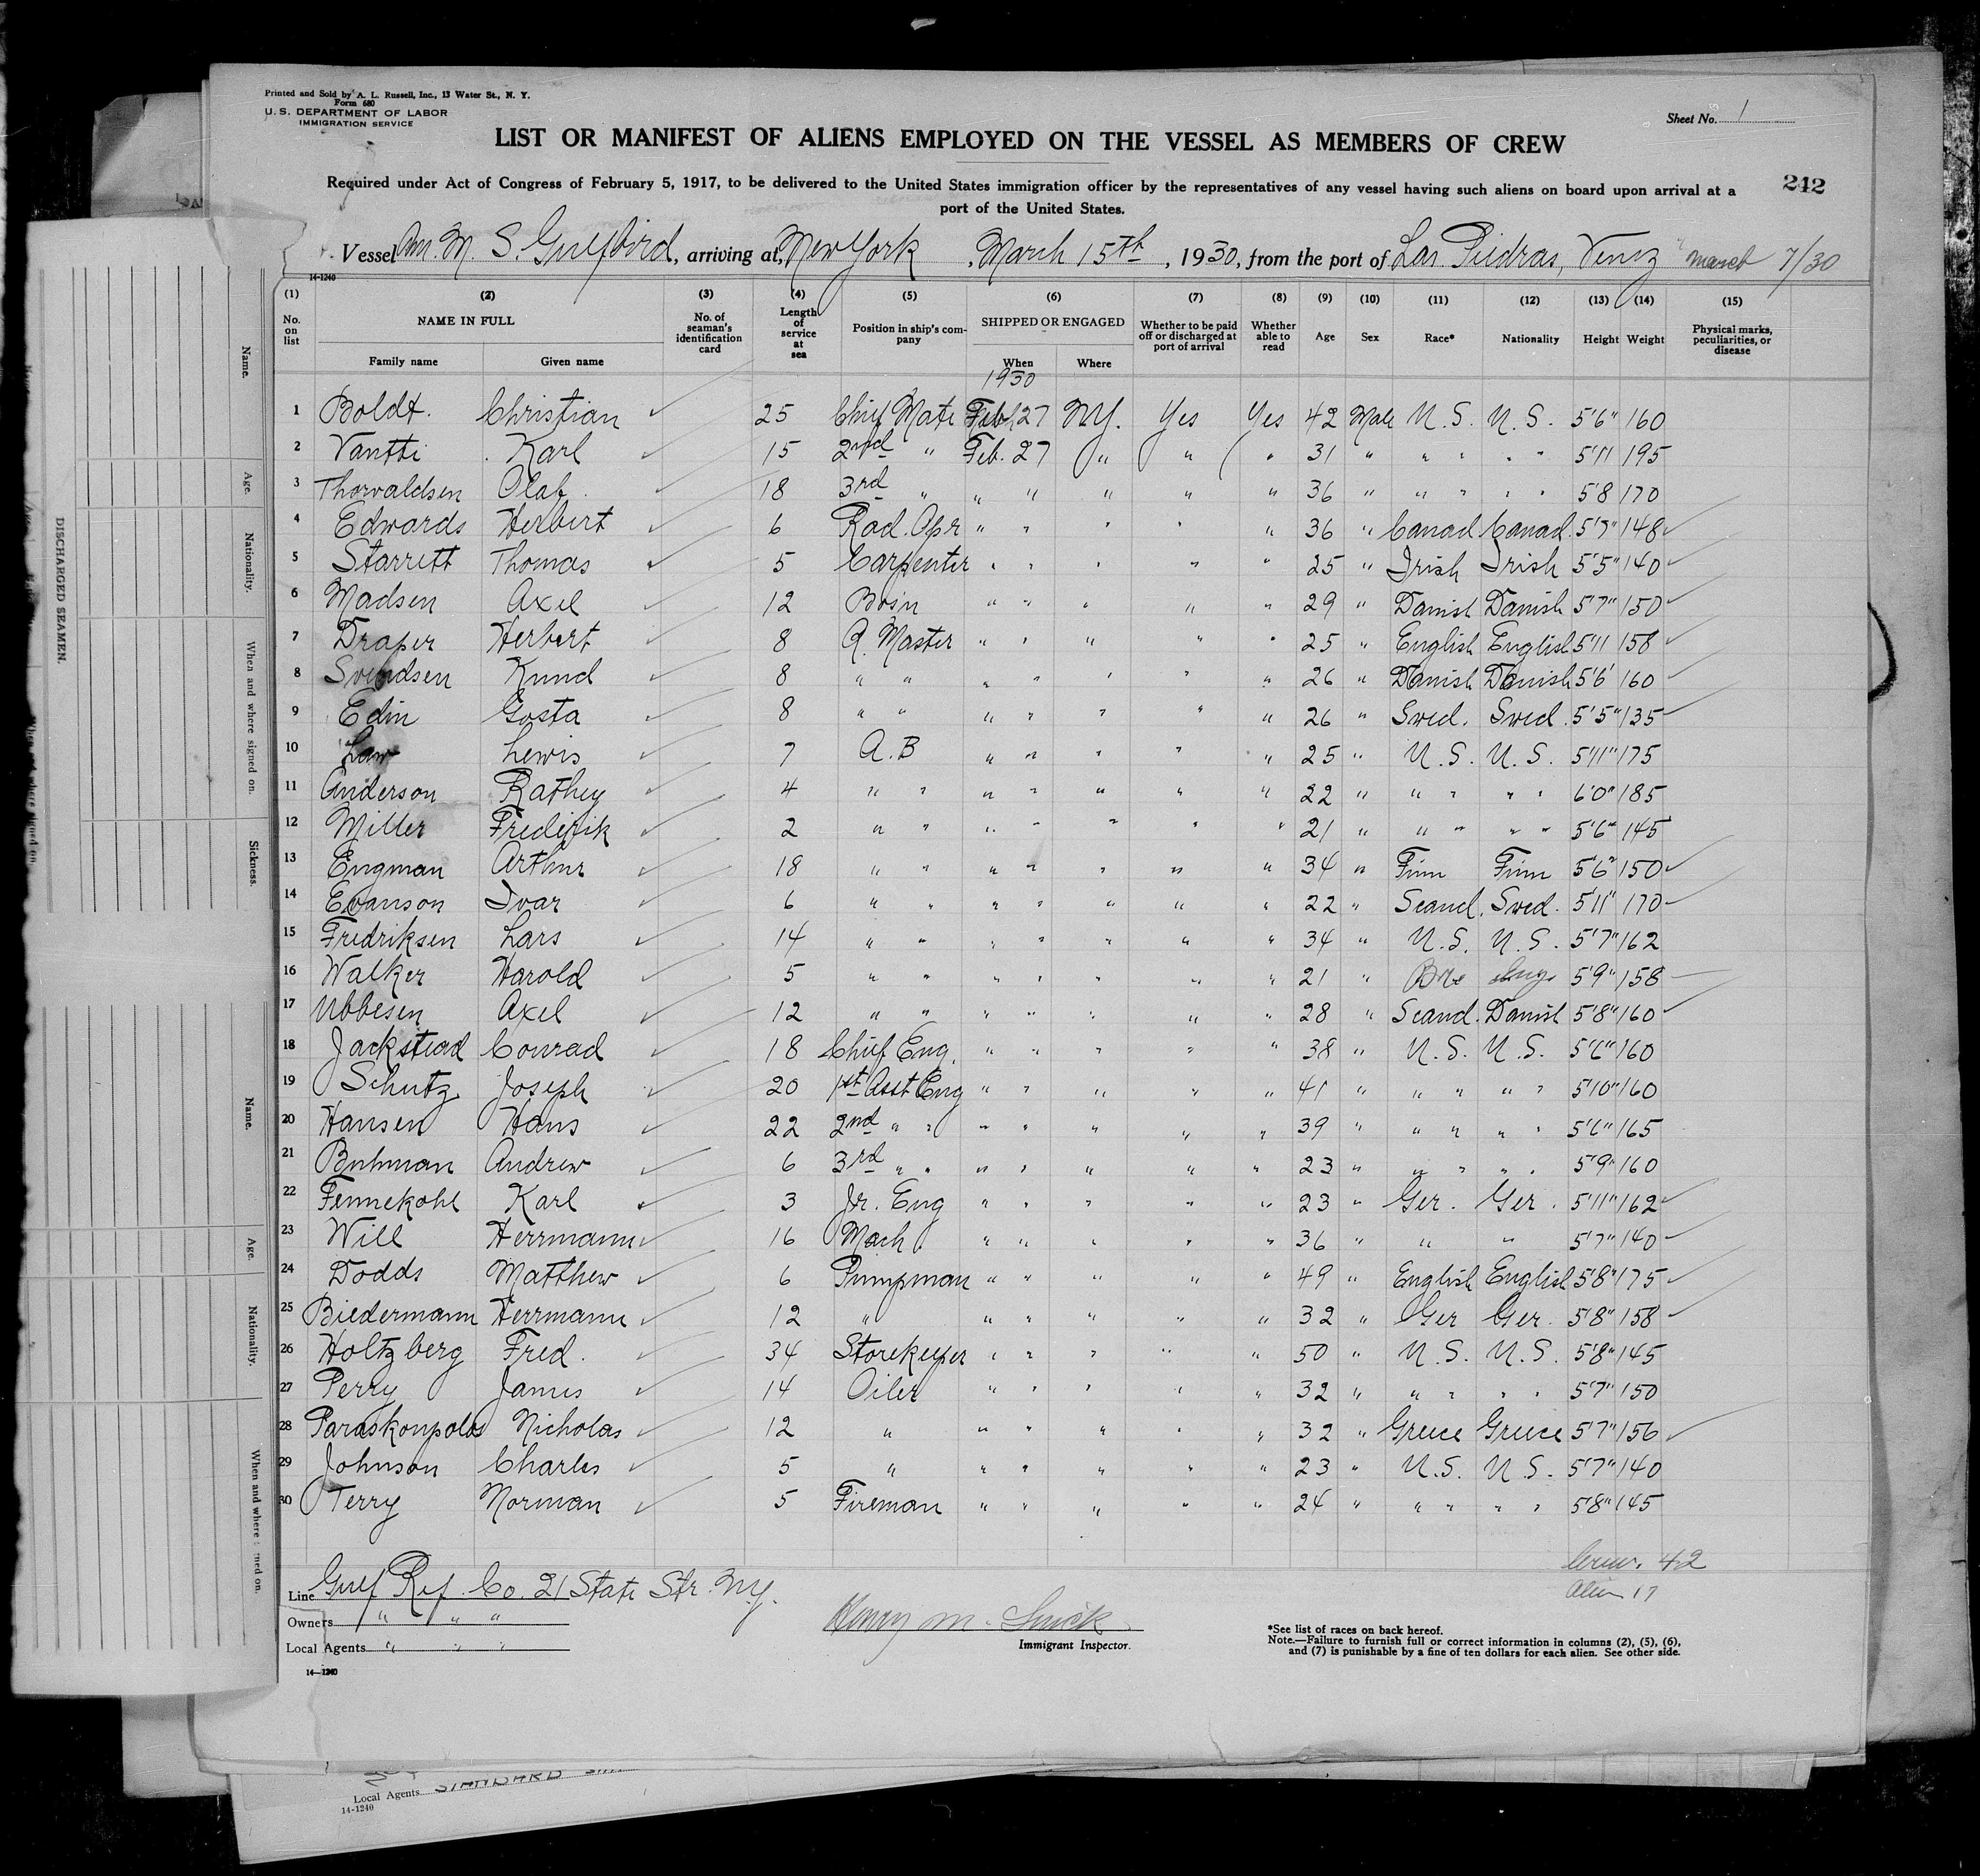 Printed and Sold by A. L. Russell, Inc., 13 Water St., N. Y.
Form 680
U. S. DEPARTMENT OF LABOR
IMMIGRATION SERVICE
Sheet No. 1
LIST OR MANIFEST OF ALIENS EMPLOYED ON THE VESSEL AS MEMBERS OF CREW
242
Required under Act of Congress of February 5, 1917, to be delivered to the United States immigration officer by the representatives of any vessel having such aliens on board upon arrival at a
port of the United States.
Vessel Am. M. S. Gulfbird, arriving at, New York, March 15th, 1930, from the port of Las Piedras, Venz March 7/30
14-1240
(1) (2) (3) (4) (5) (6) (7) (8) (9) (10) (11) (12) (13) (14) (15)
No. on list NAME IN FULL Family name Given name No. of seaman's identification card Length of service at sea Position in ship's company SHIPPED OR ENGAGED When Where Whether to be paid off or discharged at port of arrival Whether able to read Age Sex Race* Nationality Height Weight Physical marks, peculiarities, or disease
1930
1 Boldt. Christian ✓ 25 Chief Mate Feb 27 N.Y. Yes Yes 42 Male U.S. U.S. 5'6" 160
2 Vantti Karl ✓ 15 2nd " Feb. 27 " " " 31 " " " " " 5'11 195
3 Thorvaldsen Olaf ✓ 18 3rd " " " " " " 36 " " " " " 5'8 170
4 Edwards Herbert ✓ 6 Rad. Opr " " " " " 36 " Canad Canad. 5'7" 148 ✓
5 Starrett Thomas ✓ 5 Carpenter " " " " " 25 " Irish Irish 5'5" 140 ✓
6 Madsen Axel ✓ 12 Bos'n " " " " " 29 " Danish Danish 5'7" 150 ✓
7 Draper Herbert ✓ 8 Q. Master " " " " " 25 " English English 5'11 158 ✓
8 Svendsen Knud ✓ 8 " " " " " " " 26 " Danish Danish 5'6' 160 ✓
9 Edin Gosta ✓ 8 " " " " " " " 26 " Swed. Swed. 5'5" 135 ✓
10 Law Lewis ✓ 7 A.B " " " " " 25 " U.S. U.S. 5'11" 175
11 Anderson Rathey ✓ 4 " " " " " " " 22 " " " " " 6'0" 185
12 Miller Frederik ✓ 2 " " " " " " " 21 " " " " " 5'6" 145
13 Engman Arthur ✓ 18 " " " " " " " 34 " Finn Finn 5'6" 150 ✓
14 Evanson Ivar ✓ 6 " " " " " " " 22 " Scand. Swed. 5'11" 170
15 Fredriksen Lars ✓ 14 " " " " " " " 34 " U.S. U.S. 5'7" 162
16 Walker Harold ✓ 5 " " " " " " " 21 " 5'9" 158
17 Ubbesen Axel ✓ 12 " " " " " " " 28 " Scand. Danish 5'8" 160 ✓
18 Jackstead Conrad ✓ 18 Chief Eng. " " " " " 38 " U.S. U.S. 5'6" 160
19 Schutz Joseph ✓ 20 1st Asst Eng " " " " " 41 " " " " " 5'10" 160
20 Hansen Hans ✓ 22 2nd " " " " " " " 39 " " " " " 5'6" 165
21 Buhman Andrew ✓ 6 3rd " " " " " " " 23 " " " " " 5'9" 160
22 Fennekohl Karl ✓ 3 Jr. Eng " " " " " 23 " Ger. Ger. 5'11" 162 ✓
23 Will Herrmann ✓ 16 Mach. " " " " " 36 " " " 5'7" 140 ✓
24 Dodds Matthew ✓ 6 Pumpman " " " " " 49 " English English 5'8" 175 ✓
25 Biedermann Herrmann ✓ 12 " " " " " " 32 " Ger Ger. 5'8" 158 ✓
26 Holtzberg Fred. ✓ 34 Storekeeper " " " " " 50 " U.S. U.S. 5'8" 145
27 Perry James ✓ 14 Oiler " " " " " 32 " " " " " 5'7" 150
28 Paraskoupolos Nicholas ✓ 12 " " " " " " 32 " Greece Greece 5'7" 156 ✓
29 Johnson Charles ✓ 5 " " " " " " 23 " U.S. U.S. 5'7" 140
30 Terry Norman ✓ 5 Fireman " " " " " 24 " " " " " 5'8" 145
Crew. 42
Alien 17
Line Gulf Ref. Co. 21 State Str. N.Y.
Owners " " "
Local Agents " " "
14-1240
Henry M.
Immigrant Inspector.
*See list of races on back hereof.
Note.—Failure to furnish full or correct information in columns (2), (5), (6),
and (7) is punishable by a fine of ten dollars for each alien. See other side.
DISCHARGED SEAMEN.
Name.
Age.
Nationality.
When and where signed on.
Sickness.
Name.
Age.
Nationality.
When and where signed on.
Local Agents STANDARD
14-1240